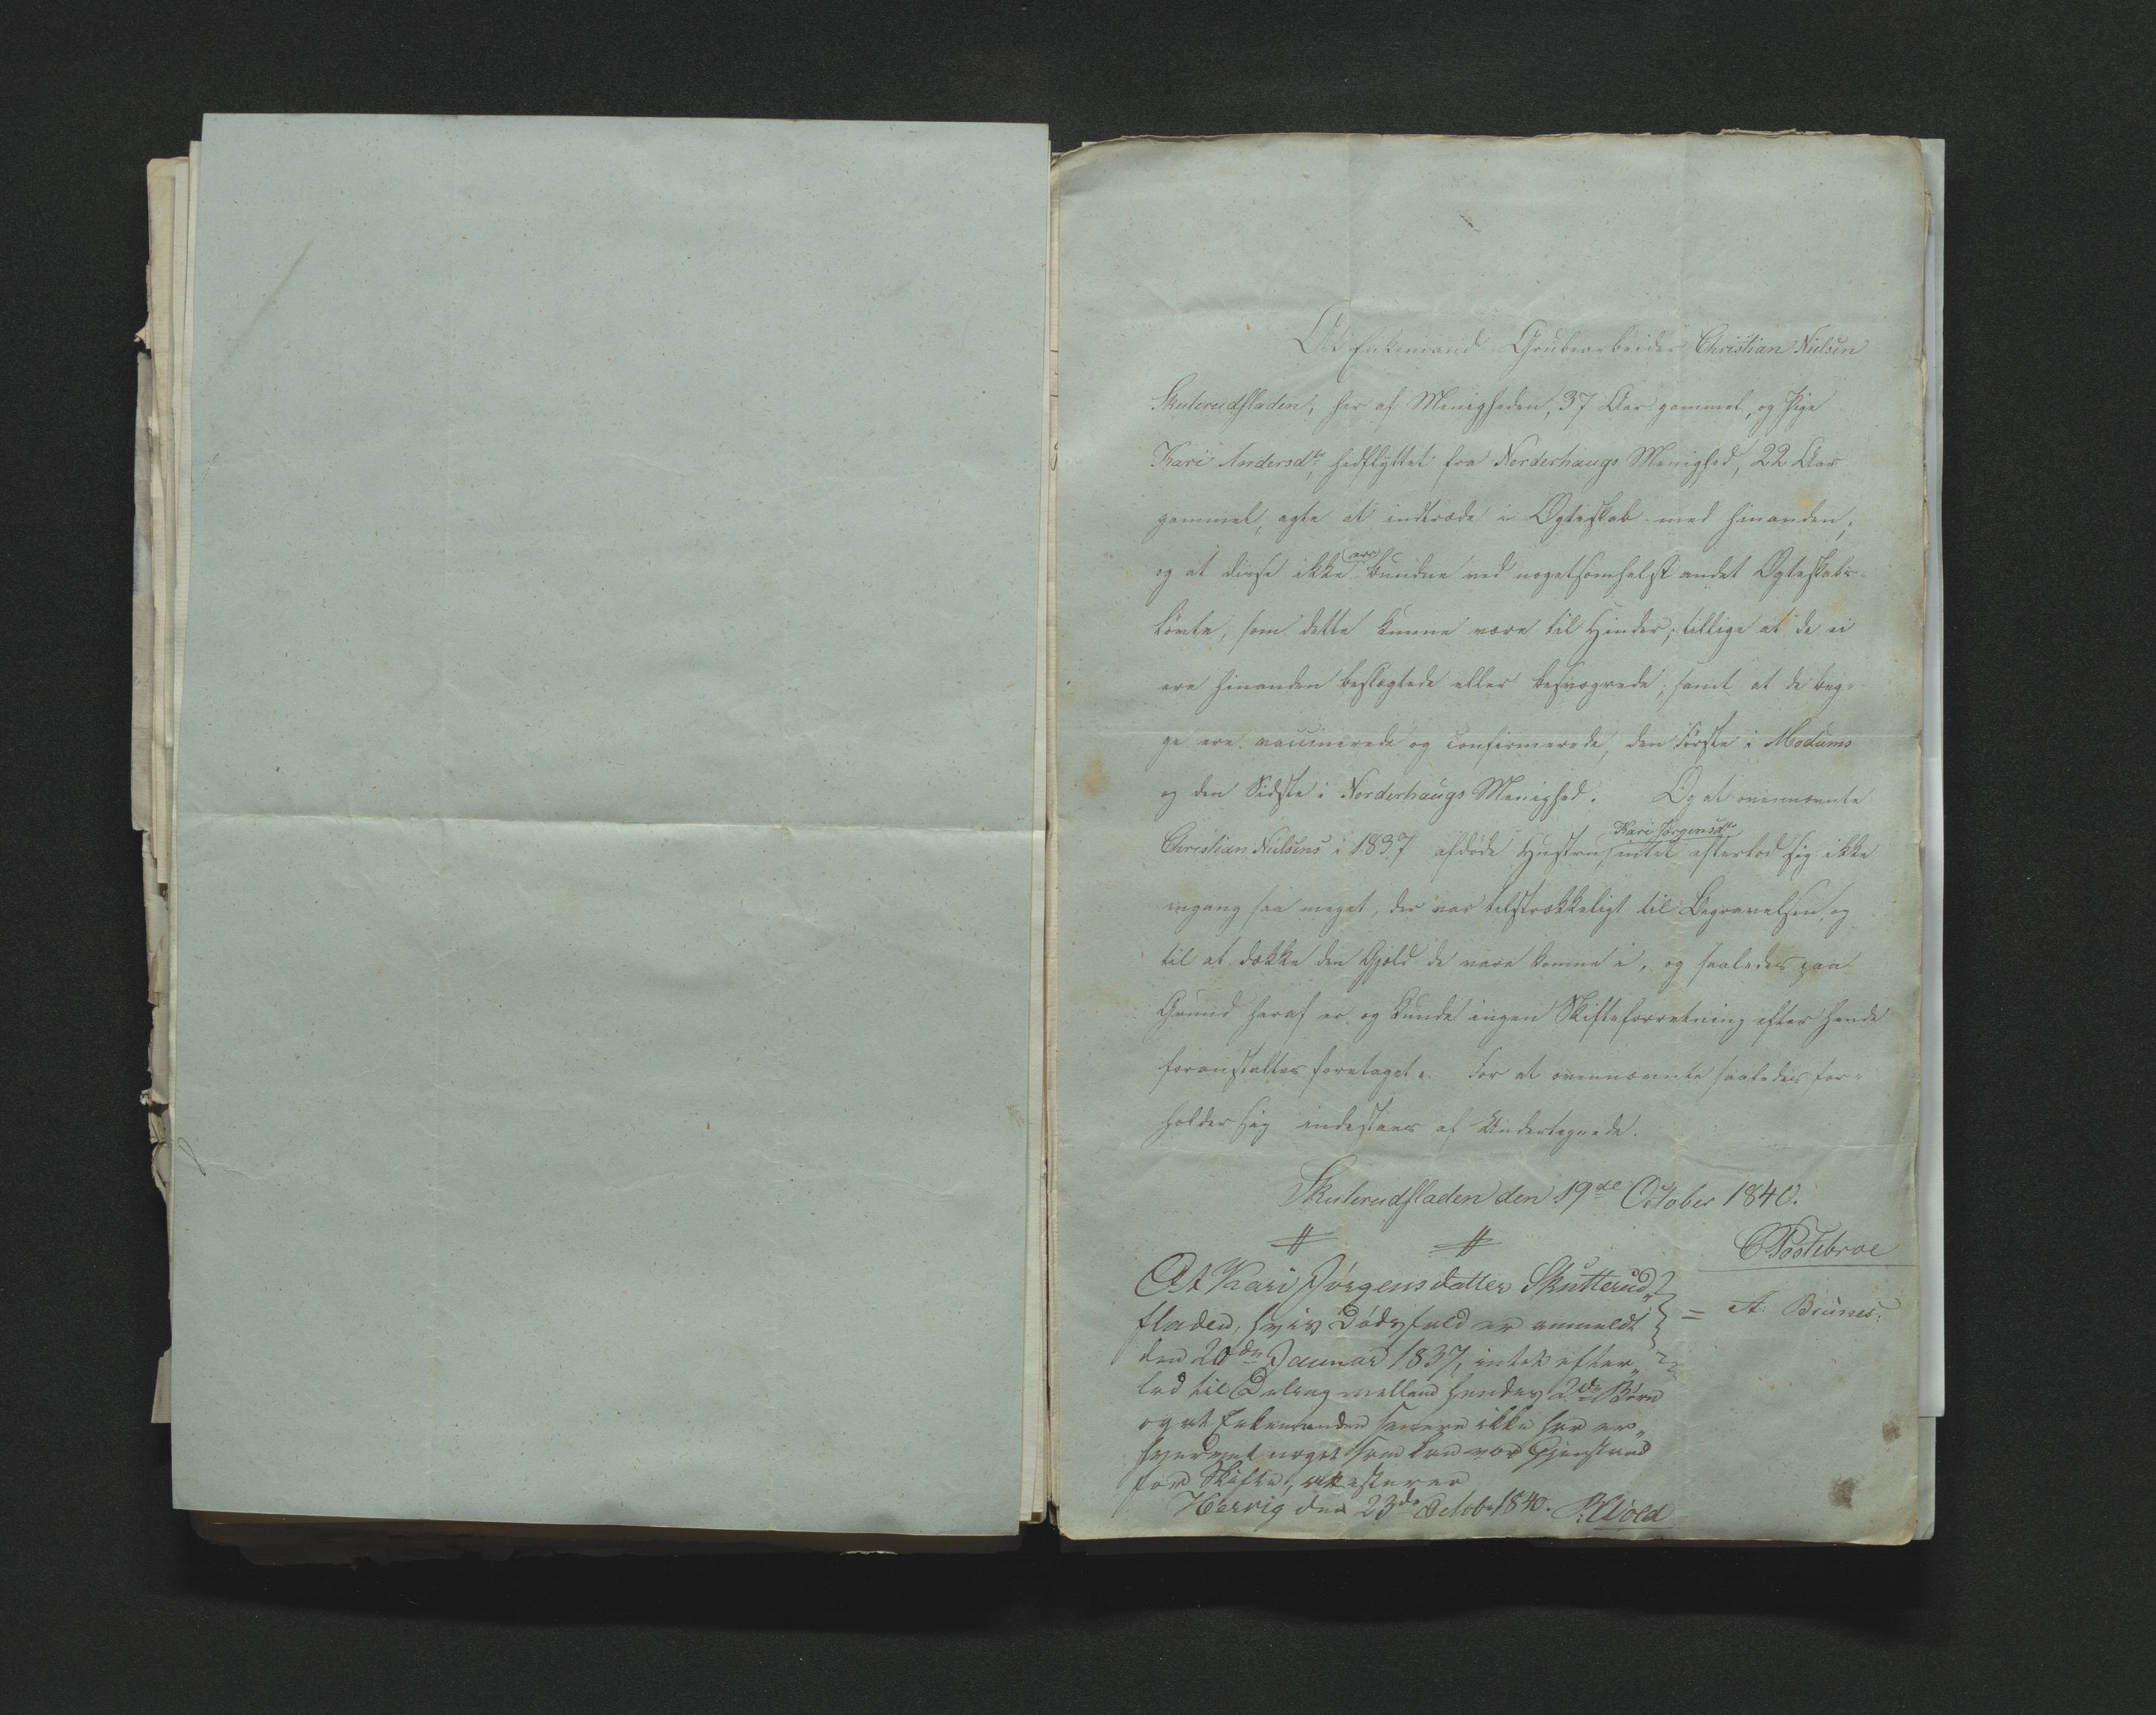 At Enkemand Grubearbeider Christian Nielsen
Skuterudfladen, her af Menigheden, 37 Aar gammel, og Pige
Kari Andersdtr, hidflyttet fra Norderhaugs Menighed, 22 Aar
gammel, agte at indtræde i Ægteskab med hinanden,
og at disse ikke ere bundne ved nogetsomhelst andet Ægteskabs-
løvte, som dette kunne være til Hinder; tillige at de ei
ere hinanden beslægtede eller besvogrede; samt at de beg-
ge ere vaccinerede og confirmerede, den Første i Modums
og den Sidste i Norderhaugs Menighed. Og at ovennævnte
Christian Nielsens i 1837 afdøde Hustru, Kari Jørgensdtr intet efterlod sig ikke
engang saa meget, der var tilstrækkeligt til Begravelsen, og
til at dække den Gjæld de vare komne i, og saaledes paa
Grund heraf er og kunde ingen Skifteforretning efter hende
foranstaltes foretaget. For at ovennævnte saaledes for-
holder sig indestaaes af Undertegnede.
Skuterudfladen den 19de October 1840.
C Postebroe
A. Brunes.
At Kari Jørgensdatter Skutterud„
fladen, hvis Dødsfald er anmeldt
den 20de Januar 1837, intet efter„
lod til Deling mellem hendes 2de Børn
og at Enkemanden senere ikke har er„
hvervet noget som kan vær Gjenstand
for Skifte, attesterer
Hærvig den 23de Octobr 1840. P. Wold